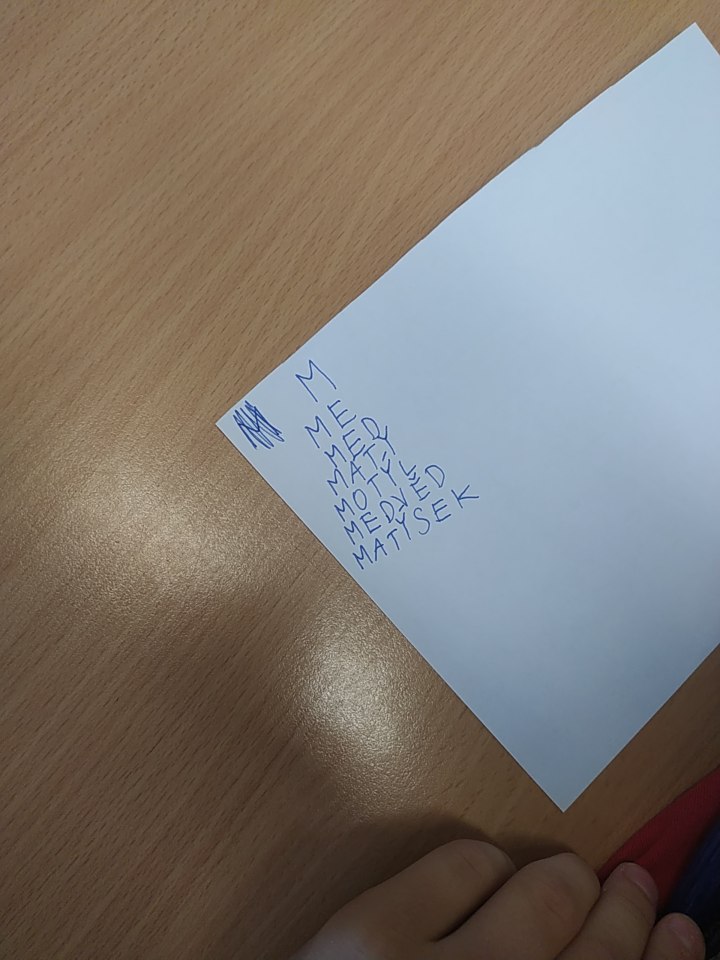 M
ME
MED
MATY
MOTÝL
MEDVĚD
MATÝSEK